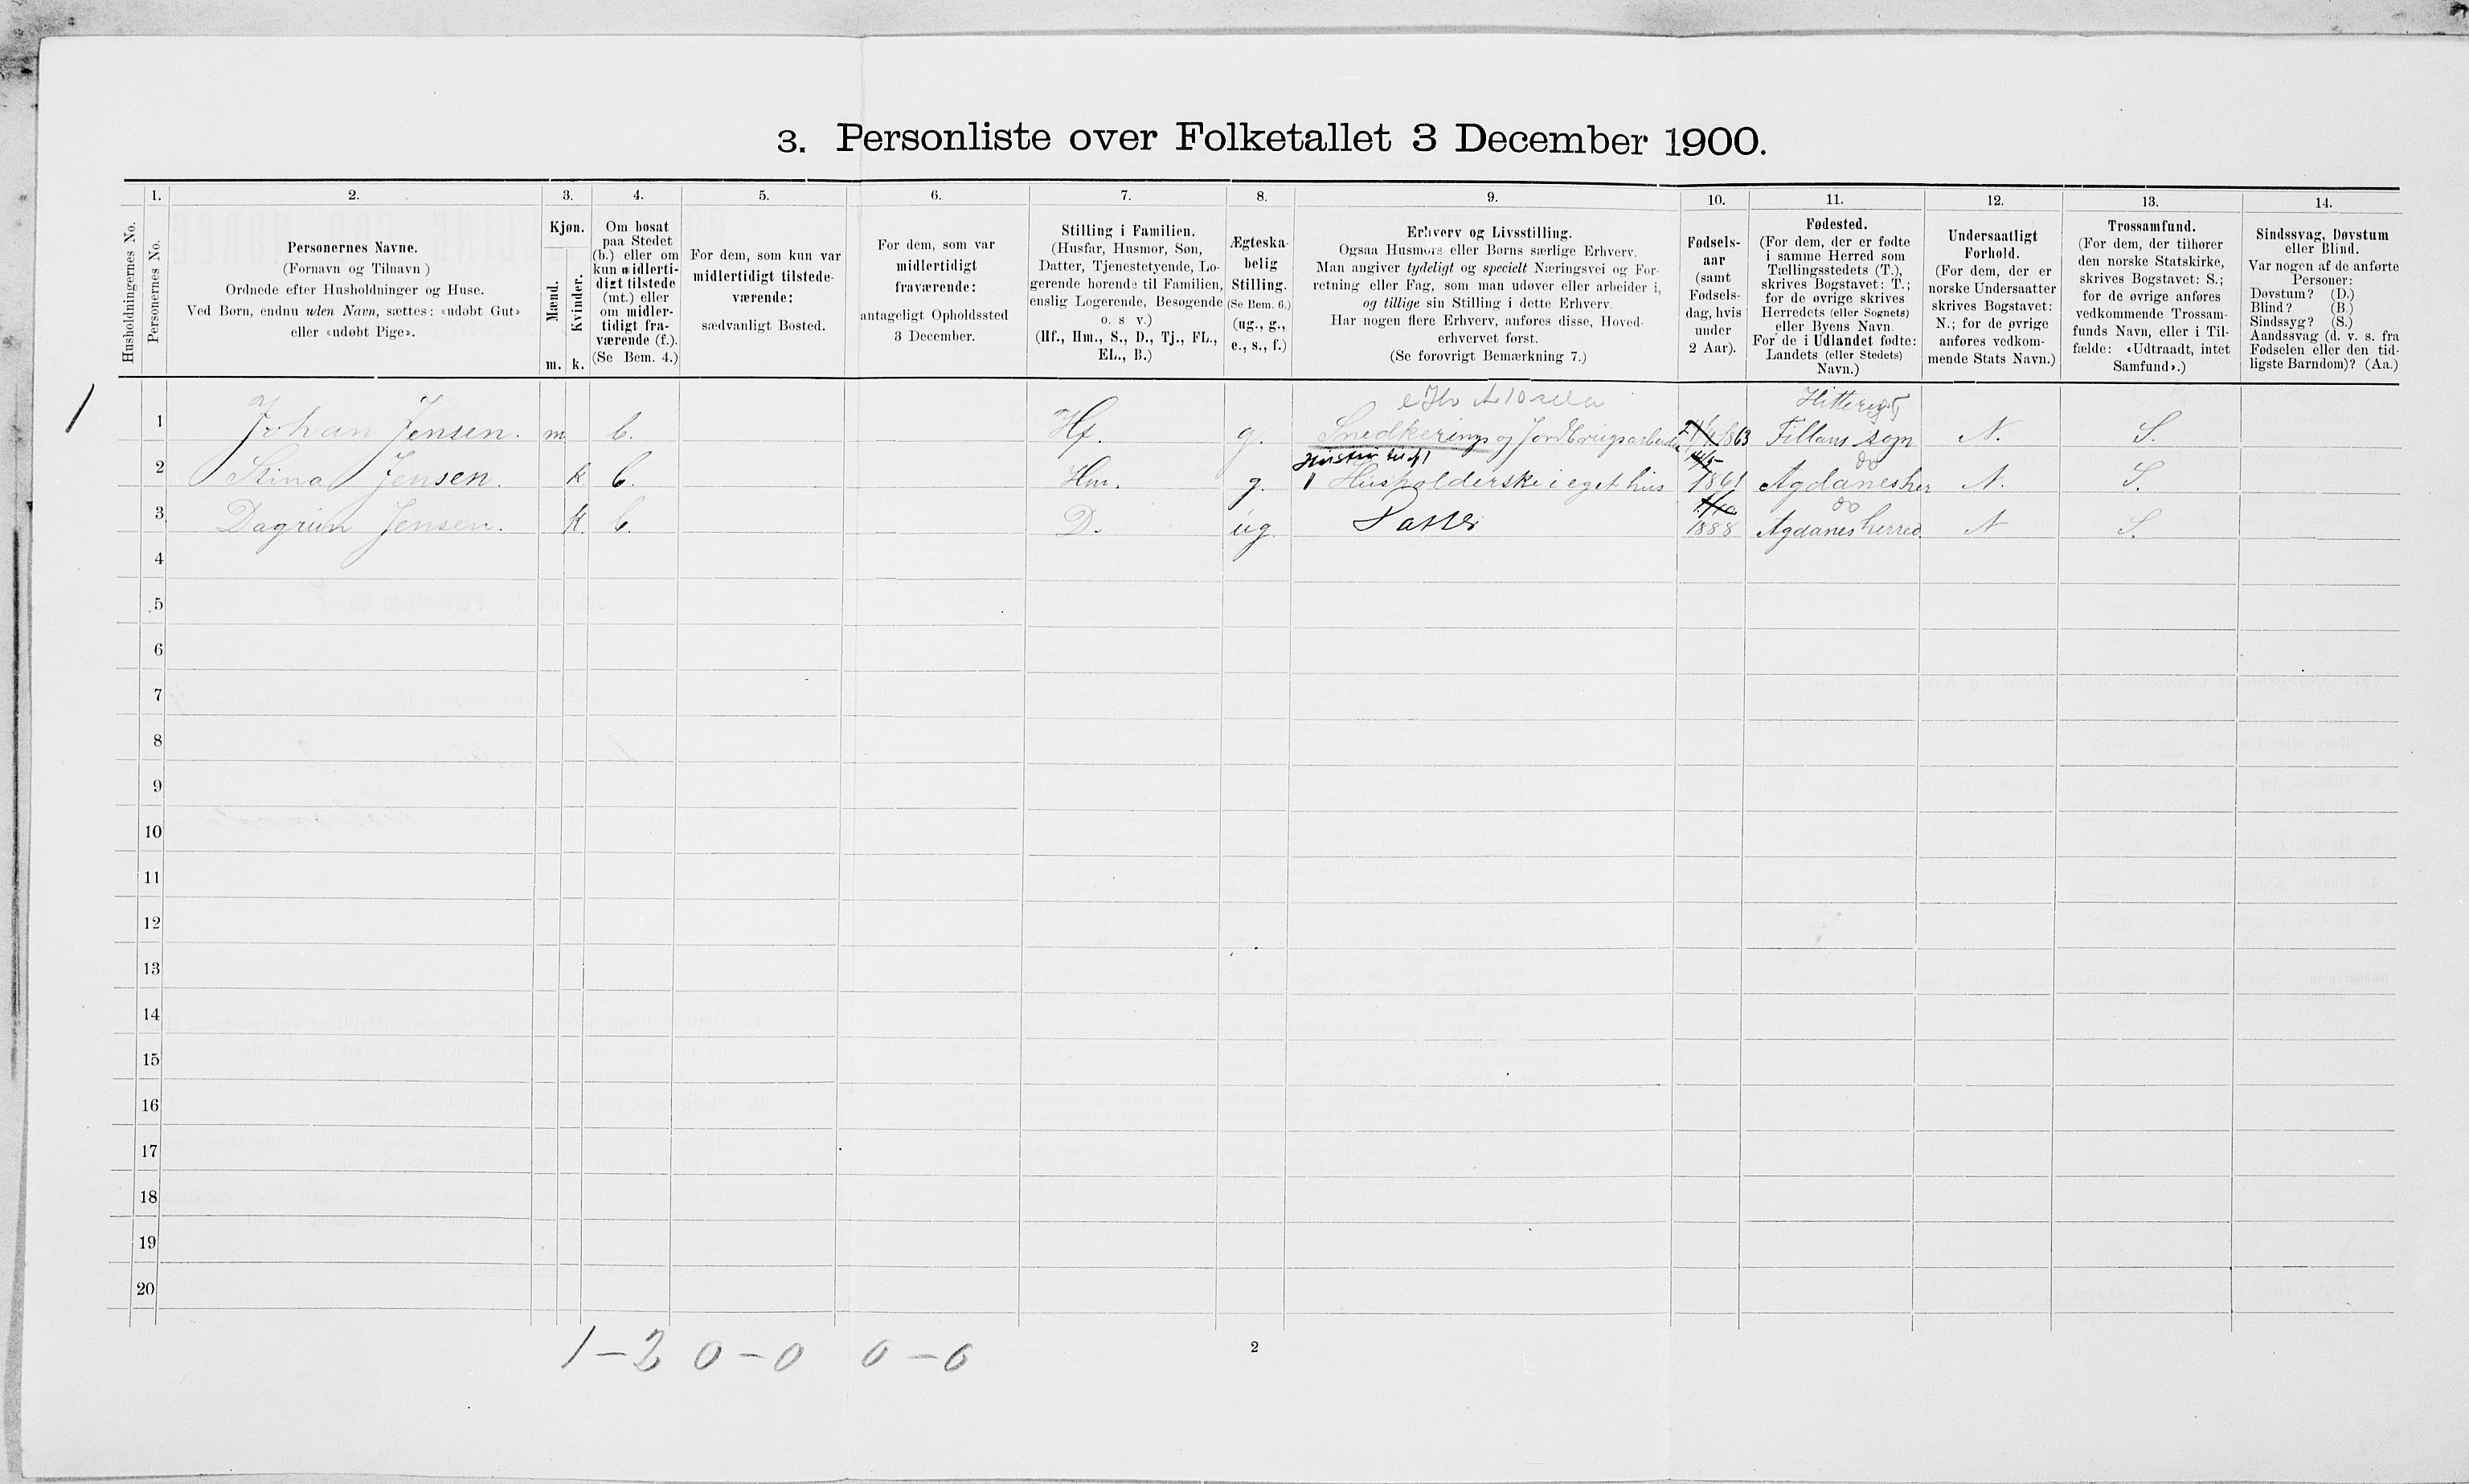 3. Personliste over Folketallet 3 December 1900.
Husholdningernes No.
1.
Personernes No.
2.
Personernes Navne.
(Fornavn og Tilnavn)
Ordnede efter Husholdninger og Huse.
Ved Børn, endnu uden Navn, sættes: «udøbt Gut»
eller «udøbt Pige».
3.
Kjøn.
Mænd.
Kvinder.
m. k.
4.
Om bosat
paa Stedet
(b.) eller om
kun midlerti-
digt tilstede
(mt.) eller
om midler-
tidigt fra-
værende (f.).
(Se Bem. 4.)
5.
For dem, som kun var
midlertidigt tilstede-
værende:
sædvanligt Bosted.
6.
For dem, som var
midlertidigt
fraværende:
antageligt Opholdssted
3 December.
7.
Stilling i Familien.
(Husfar, Husmor, Søn,
Datter, Tjenestetyende, Lo-
gerende hørende til Familien,
enslig Logerende, Besøgende
o. s v.)
(Hf., Hm., S., D., Tj., FL.,
EL., B.)
8.
Ægteska-
belig
Stilling.
(Se Bem. 6.)
(ug., g.,
e., s., f.)
9.
Erhverv og Livsstilling.
Ogsaa Husmors eller Børns særlige Erhverv.
Man angiver tydeligt og specielt Næringsvei og For-
retning eller Fag, som man udøver eller arbeider i,
og tillige sin Stilling i dette Erhverv.
Har nogen flere Erhverv, anføres disse, Hoved-
erhvervet først.
(Se forøvrigt Bemærkning 7.)
10.
Fødsels-
aar
(samt
Fødsels-
dag, hvis
under
2 Aar).
11.
Fødested.
(For dem, der er fødte
i samme Herred som
Tællingsstedets (T.),
skrives Bogstavet: T.;
for de øvrige skrives
Herredets (eller Sognets)
eller Byens Navn.
For de i Udlandet fødte:
Landets (eller Stedets)
Navn.)
12.
Undersaatligt
Forhold.
(For dem, der er
norske Undersaatter
skrives Bogstavet:
N.; for de øvrige
anføres vedkom-
mende Stats Navn.)
13.
Trossamfund.
(For dem, der tilhører
den norske Statskirke,
skrives Bogstavet: S.;
for de øvrige anføres
vedkommende Trossam-
funds Navn, eller i Til-
fælde: «Udtraadt, intet
Samfund».)
14.
Sindssvag, Døvstum
eller Blind.
Var nogen af de anførte
Personer:
Døvstum? (D.)
Blind? (B.)
Sindssyg? (S.)
Aandssvag (d. v. s. fra
Fødselen eller den tid-
ligste Barndom)? (Aa.)
1
Hitterø
1 Johan Jensen. m b. Hf. g. Snedkerings og Jordbrugsarbeide 1863 Fillans sogn N. S.
do
2 Stina Jensen. k b. Hm. g. Husholderske i eget hus 1861 Agdanesher N. S.
do
3 Dagrun Jensen. k. b. D. ug. Datter 1888 Agdanes herred N S.
4
5
6
7
8
9
10
11
12
13
14
15
16
17
18
19
20
1-2 0-0 0-0
2